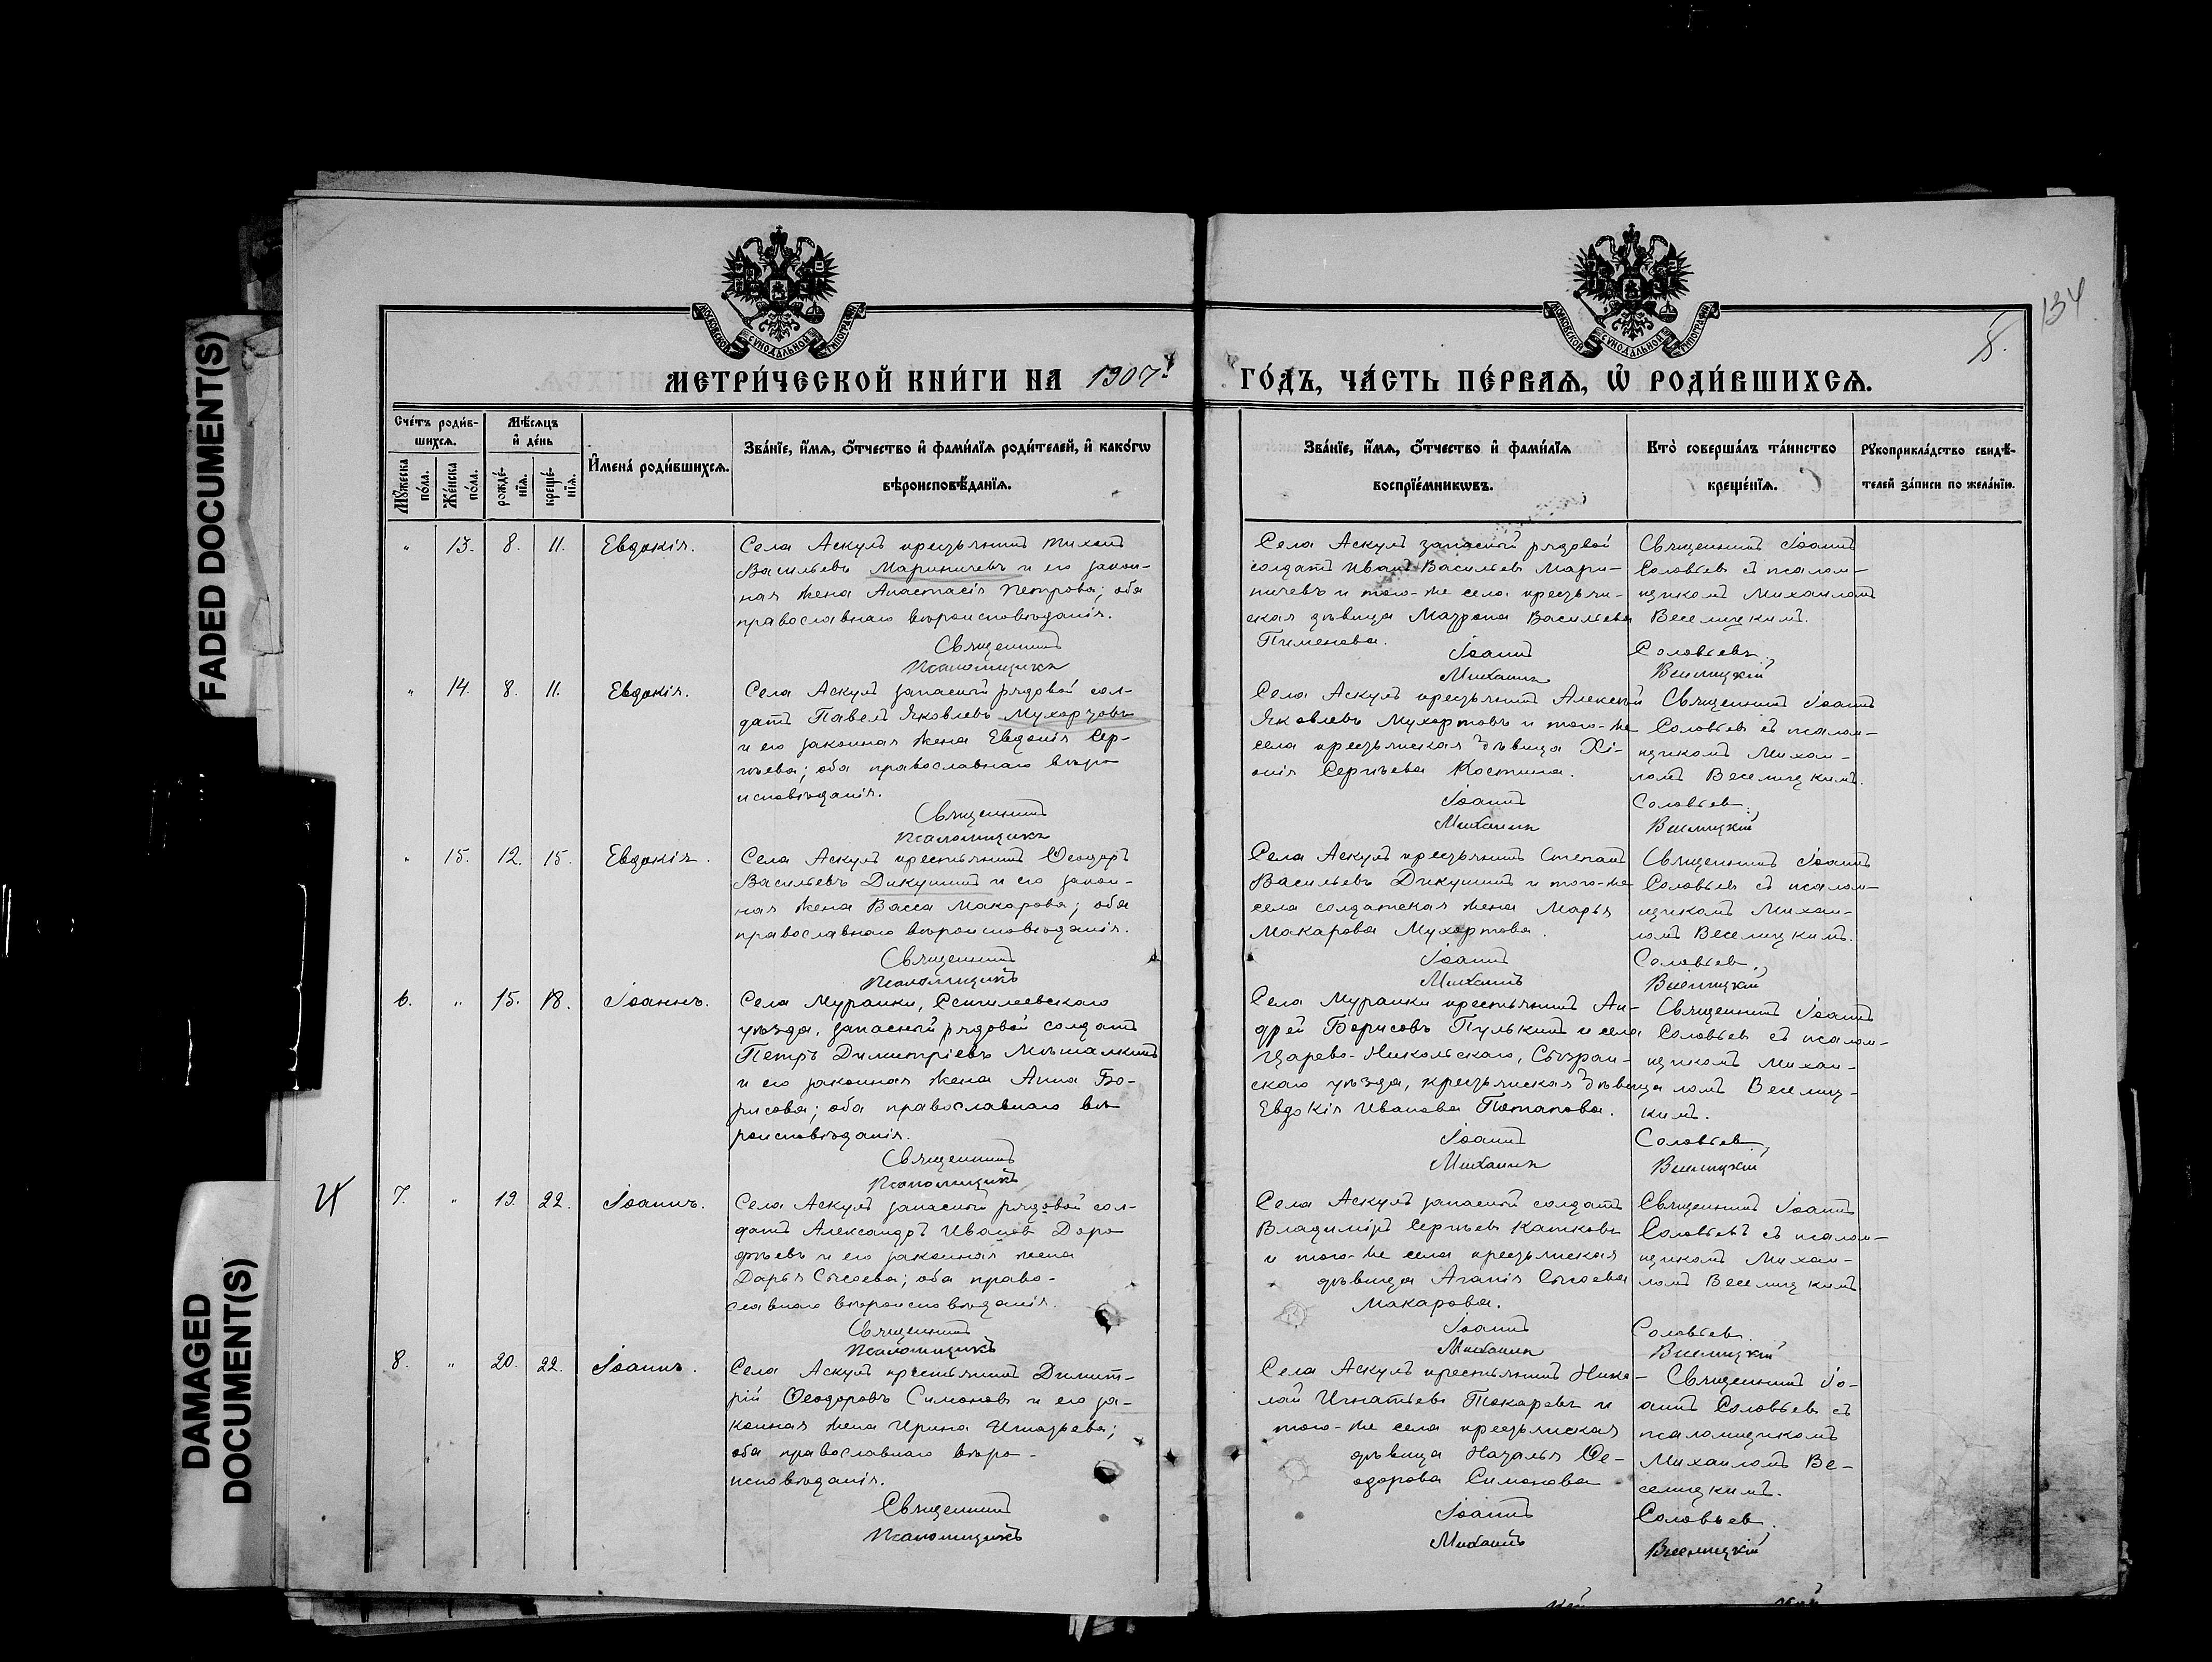 FADED DOCUMENT(S)
DAMAGED
DOCUMENT(S)
134
8.
МОСКОВСКОЙ СѴНОДАЛЬНОЙ ТИПОГРАФІИ
МОСКОВСКОЙ СѴНОДАЛЬНОЙ ТИПОГРАФІИ
МЕТРИ́ЧЕСКОЙ КНИ́ГИ НА 1907й
ГО́ДЪ, ЧА́СТЬ ПЕ́РВАѦ, Ѡ҆ РОДИ́ВШИХСѦ.
Сче́тъ роди́в-
шихсѧ.
Мꙋ́жеска
по́ла.
Же́нска
по́ла.
Мѣ́сѧцъ
и҆ де́нь
рожде́-
нїѧ.
креще́-
нїѧ.
И҆мена̀ роди́вшихсѧ.
Зва́нїе, и҆́мѧ, ѻ҆́тчество и҆ фами́лїѧ роди́телей, и҆ како́гѡ
вѣроисповѣ́данїѧ.
Зва́нїе, и҆́мѧ, ѻ҆́тчество и҆ фами́лїѧ
воспрїе́мникѡвъ.
Кто̀ соверша́лъ та́инство
креще́нїѧ.
Рꙋкоприкла́дство свидѣ́-
телей за́писи по жела́нїю.
" 13. 8. 11. Евдокія.
Села Аскулъ крестьянинъ Тихонъ
Васильевъ Мариничевъ и его закон-
ная жена Анастасія Петрова; оба
православнаго вѣроисповѣданія.
Священникъ
Псаломщикъ
Села Аскулъ запасный рядовой
солдатъ Иванъ Васильевъ Мари-
ничевъ и того-же села крестьян-
ская дѣвица Мавра Васильева
Пименова.
Іоаннъ
Михаилъ
Священникъ Іоаннъ
Соловьевъ съ псалом-
щикомъ Михаиломъ
Веселицкимъ.
Соловьевъ.
Веселицкій
" 14. 8. 11. Евдокія.
Села Аскулъ запасный рядовой сол-
датъ Павелъ Яковлевъ Мухортовъ
и его законная жена Евдокія Сер-
гѣева; оба православнаго вѣро
исповѣданія.
Священникъ
Псаломщикъ
Села Аскулъ крестьянинъ Алексѣй
Яковлевъ Мухортовъ и того-же
села крестьянская дѣвица Хі-
онія Сергѣева Костина.
Іоаннъ
Михаилъ
Священникъ Іоаннъ
Соловьевъ съ псалом-
щикомъ Михаи-
ломъ Веселицкимъ.
Соловьевъ.
Веселицкій
" 15. 12. 15. Евдокія.
Села Аскулъ крестьянинъ Ѳеодоръ
Васильевъ Дикушинъ и его закон-
ная жена Васса Макарова; оба
православнаго вѣроисповѣданія.
Священникъ
Псаломщикъ
Села Аскулъ крестьянинъ Степанъ
Васильевъ Дикушинъ и того-же
села солдатская жена Марья
Макарова Мухортова.
Іоаннъ
Михаилъ
Священникъ Іоаннъ
Соловьевъ съ псалом-
щикомъ Михаи-
ломъ Веселицкимъ.
Соловьевъ.
Веселицкій
6. " 15. 18. Іоаннъ.
Села Муранки, Сенгилеевскаго
уѣзда, запасный рядовой солдатъ
Петръ Димитріевъ Мѣшалкинъ
и его законная жена Анна Бо-
рисова; оба православнаго вѣ
роисповѣданія.
Священникъ
Псаломщикъ
Села Муранки крестьянинъ Ан-
дрей Борисовъ Пулькинъ и села
Царево-Никольскаго, Сызран-
скаго уѣзда, крестьянская дѣвица
Евдокія Иванова Потапова.
Іоаннъ
Михаилъ
Священникъ Іоаннъ
Соловьевъ съ псалом-
щикомъ Михаи-
ломъ Веселиц-
кимъ.
Соловьевъ
Веселицкій
7. " 19. 22. Іоаннъ.
Села Аскулъ запасный рядовой сол-
датъ Александръ Ивановъ Доро
фѣевъ и его законная жена
Дарья Сысоева; оба право-
славнаго вѣроисповѣданія.
Священникъ
Псаломщикъ
Села Аскулъ запасной солдатъ
Владиміръ Сергѣевъ Катковъ
и того-же села крестьянская
дѣвица Агапія Сысоева
Макарова.
Іоаннъ
Михаилъ
Священникъ Іоаннъ
Соловьевъ съ псалом-
щикомъ Михаи-
ломъ Веселицкимъ
Соловьевъ.
Веселицкій
8. " 20. 22. Іоаннъ.
Села Аскулъ крестьянинъ Димит-
рій Ѳеодоровъ Симоновъ и его за-
конная жена Ирина Игнатьева;
оба православнаго вѣро-
исповѣданія.
Священникъ
Псаломщикъ
Села Аскулъ крестьянинъ Нико-
лай Игнатьевъ Токаревъ и
того-же села крестьянская
дѣвица Наталья Ѳе-
одорова Симонова
Іоаннъ
Михаилъ
Священникъ Іо-
аннъ Соловьевъ съ
псаломщикомъ
Михаиломъ Ве-
селицкимъ.
Соловьев.
Веселицкій